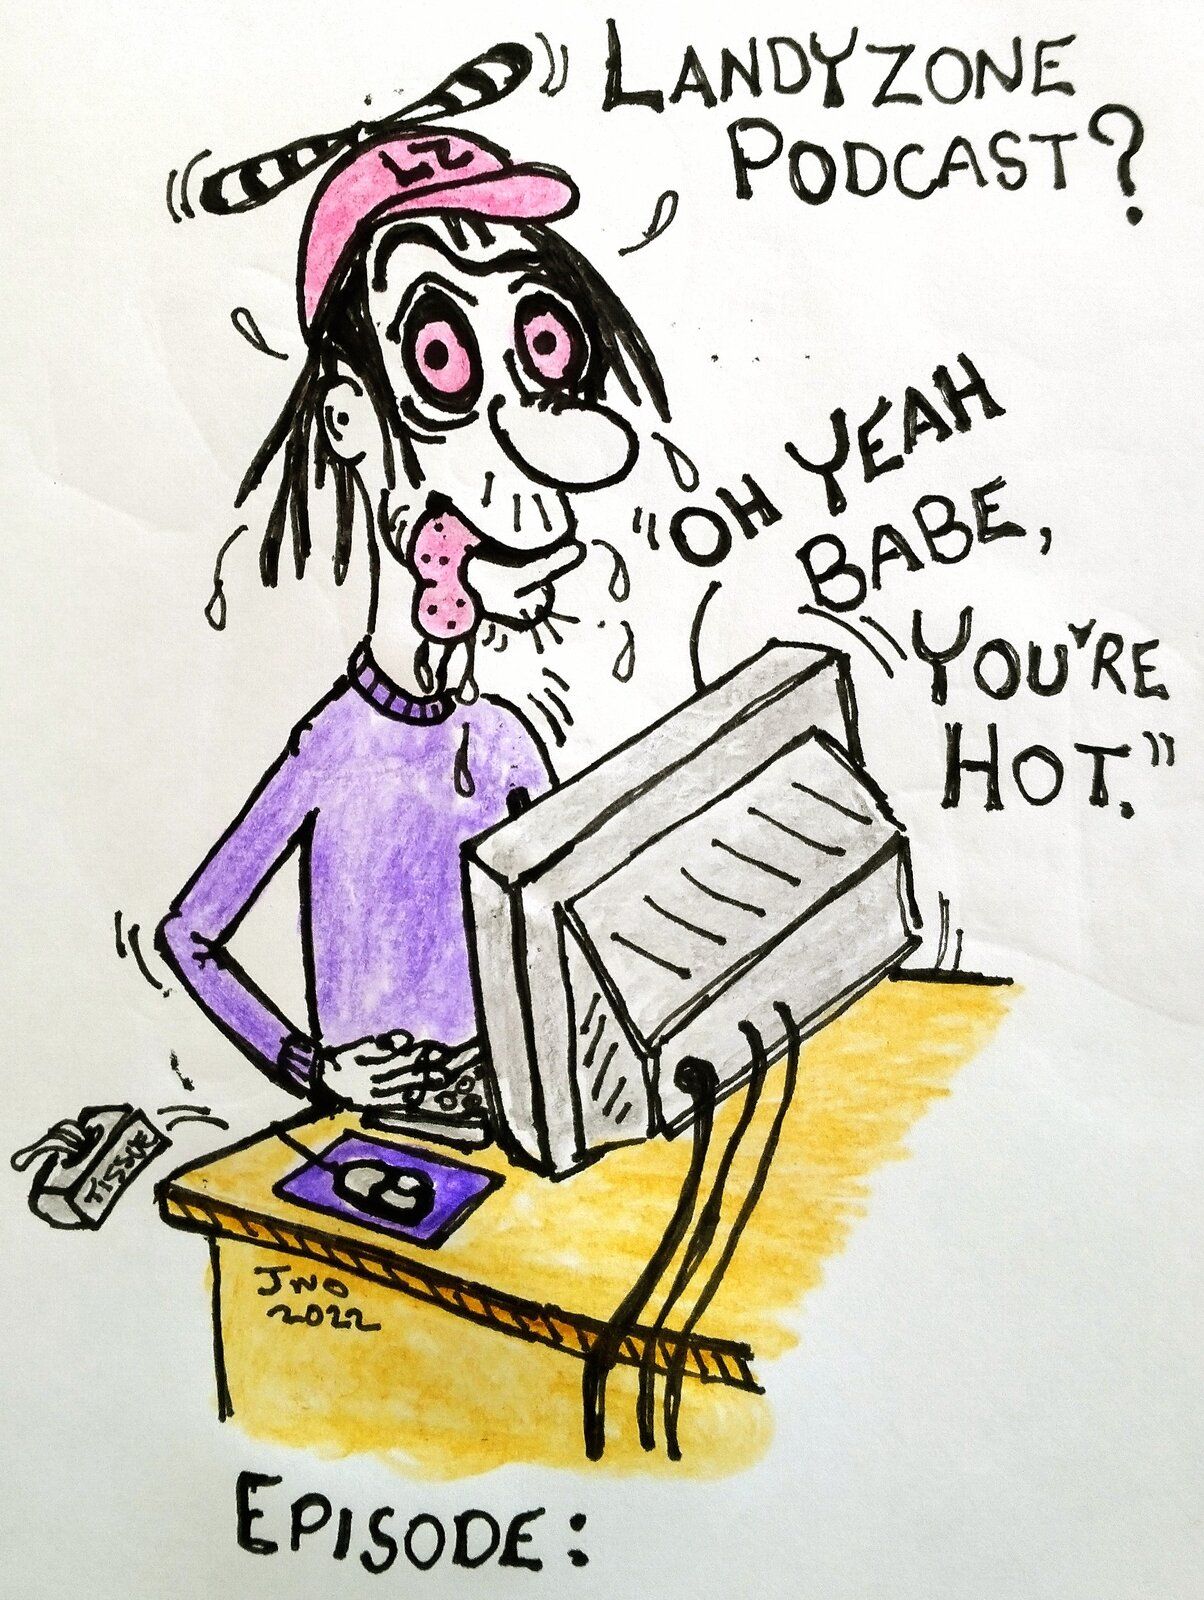 LANDYZONE
PODCAST?
LZ
"OH YEAH
BABE,
YOU'RE
HOT."
TISSUE
JNO
2022
EPISODE: